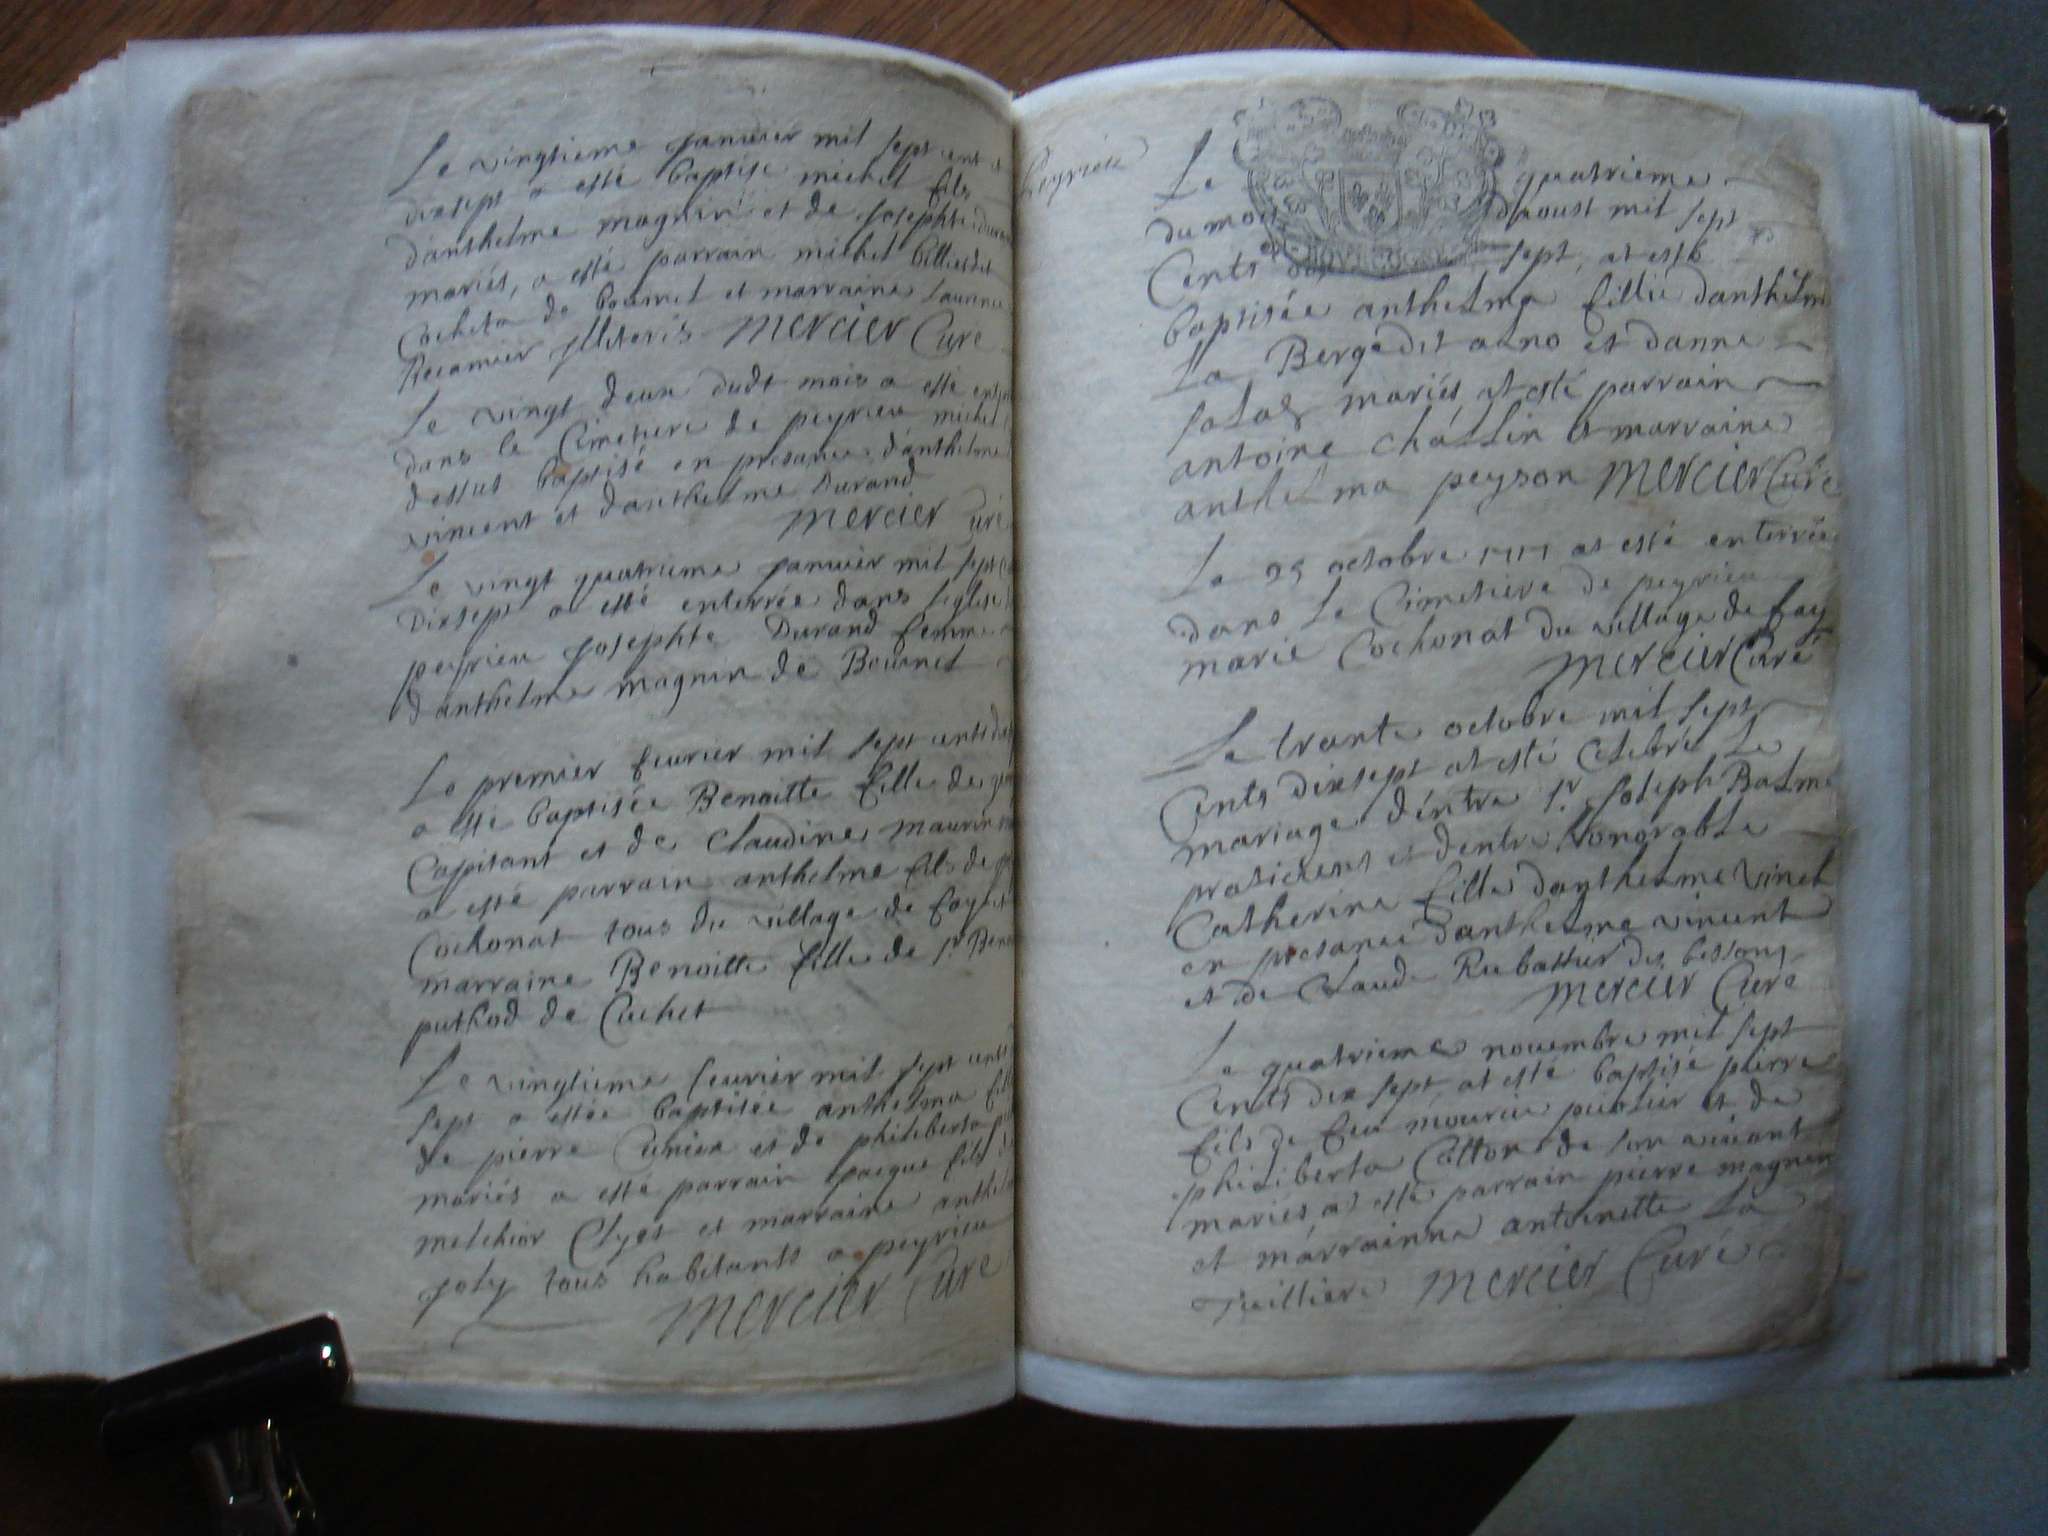 Le vingtieme janvier mil sept cent et
dixsept a esté baptisé michel fils
danthelme magnin et de Josephte durand
mariés, a esté parrain michel billiendet
Cocheta de bournet et marraine
Recamier illiteris Mercier Curé
Le vingt deux dudt mois a esté enterré
dans le Cimetiere de peyrieu michel
dessus baptisé en presance d'anthelme
vincent et danthelme Durand
Mercier Curé
Le vingt quatrieme janvier mil sept
Dixsept a esté enterrée dans leglise
peyrieu Josephte Durand femme
danthelme magnin de Bournet
Le premier feurier mil sept cents dix
a esté baptisée Benoitte fille de
Capitant et de Claudine maurin
a esté parrain anthelme fils de
Cochonat tous du village de fay et
marraine Benoitte fille de sr. Benoit
puthod de Cuchet
Le vingtieme feurier mil sept cents
sept a estée baptisée anthelma fille
de pierre Cunier et de philiberta
mariés a esté parrain jacque fils de
melchior Clyet et marraine anthelma
joly tous habitants a peyrieu
Mercier Curé
peyrieu
Le quatrieme
du mois daoust mil sept
Cents dix sept, at esté
baptisée anthelma fillie danthelme
La Berge dit ano et danne
salas mariés, at esté parrain
antoine Challin et marraine
anthelma peyson Mercier Curé
Le 25 octobre 1717 at esté enterrée
dans le Cimetiere de peyrieu
marie Cochonat du village de fay
Mercier Curé
Le trante octobre mil sept
Cents dixsept at esté Celebré le
mariage d'entre sr. Joseph Balme
praticient et dentre honorable
Catherine fille danthelme vincent
en presance danthelme vincent
et de Claude Rubattier des bessons
Mercier Curé
Le quatrieme nouembre mil sept
Cents dix sept, at esté baptisé pierre
fils de feu mouriu peiolier et de
philiberta Catton de son vivant
mariés, at esté parrain pierre magnin
et marrainne antoinette La
Tuilliere Mercier Curé